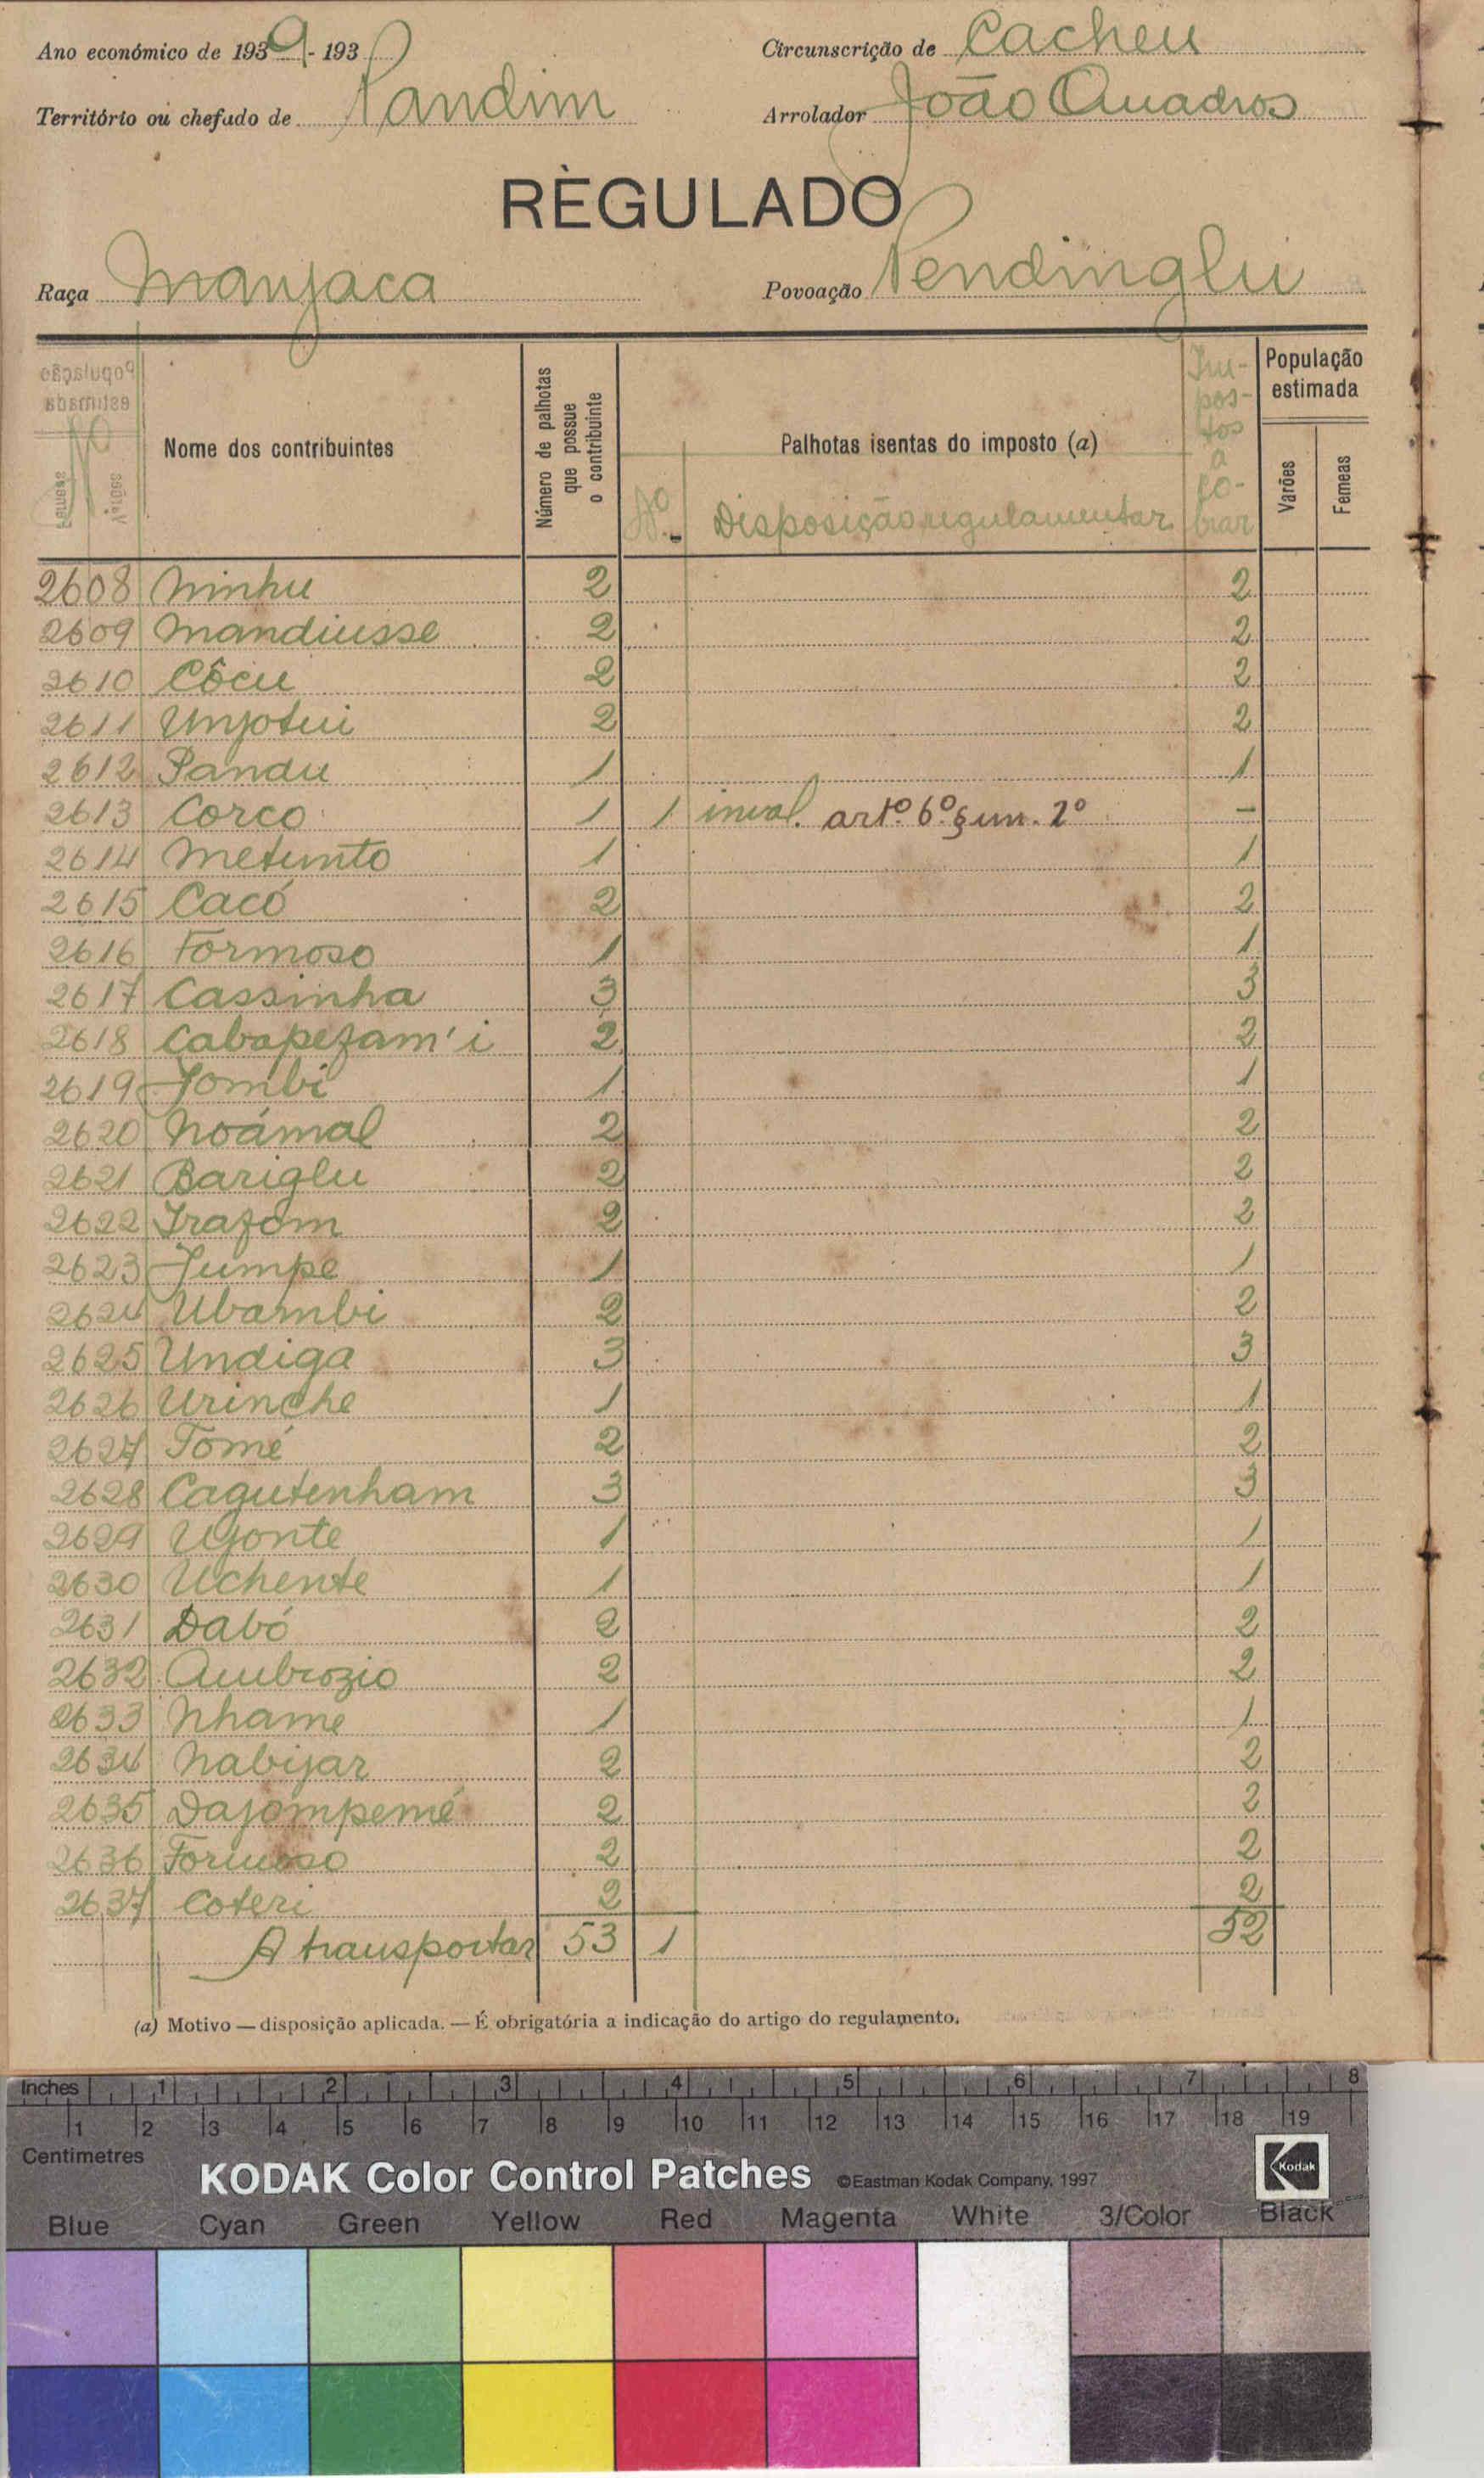 Ano económico de 1939 - 193
Circunscrição de Cacheu
Território ou chefado de Pandim
Arrolador João Quadros
RÈGULADO
Raça Manjaca
Povoação Pendinglu
População estimada
Nº
Femeas
Varões
Nome dos contribuintes
Número de palhotas que possue o contribuinte
Palhotas isentas do imposto (a)
Nº
Disposição regulamentar
Impostos a cobrar
População estimada
Varões
Femeas
2608 Ninhu 2 2
2609 Mandiusse 2 2
2610 Côcu 2 2
2611 Unjotui 2 2
2612 Pandu 1 1
2613 Corco 1 1 inval. artº. 6º. § um. 2º -
2614 Metunto 1 1
2615 Cacó 2 2
2616 Formoso 1 1
2617 Cassinha 3 3
2618 Cabapezam'i 2 2
2619 Jombi 1 1
2620 Noámal 2 2
2621 Bariglu 2 2
2622 Irazom 2 2
2623 Jumpe 1 1
2624 Ubambi 2 2
2625 Undiga 3 3
2626 Urinche 1 1
2627 Tomé 2 2
2628 Cagutenham 3 3
2629 Ujonte 1 1
2630 Uchente 1 1
2631 Dabó 2 2
2632 Ambrozio 2 2
2633 Nhame 1 1
2634 Nabijar 2 2
2635 Dajompemé 2 2
2636 Formoso 2 2
2637 Coteri 2 2
A transportar 53 1 52
(a) Motivo — disposição aplicada. — É obrigatória a indicação do artigo do regulamento.
Inches 1 2 3 4 5 6 7 8
1 2 3 4 5 6 7 8 9 10 11 12 13 14 15 16 17 18 19
Centimetres
KODAK Color Control Patches ©Eastman Kodak Company, 1997 Kodak
Blue Cyan Green Yellow Red Magenta White 3/Color Black